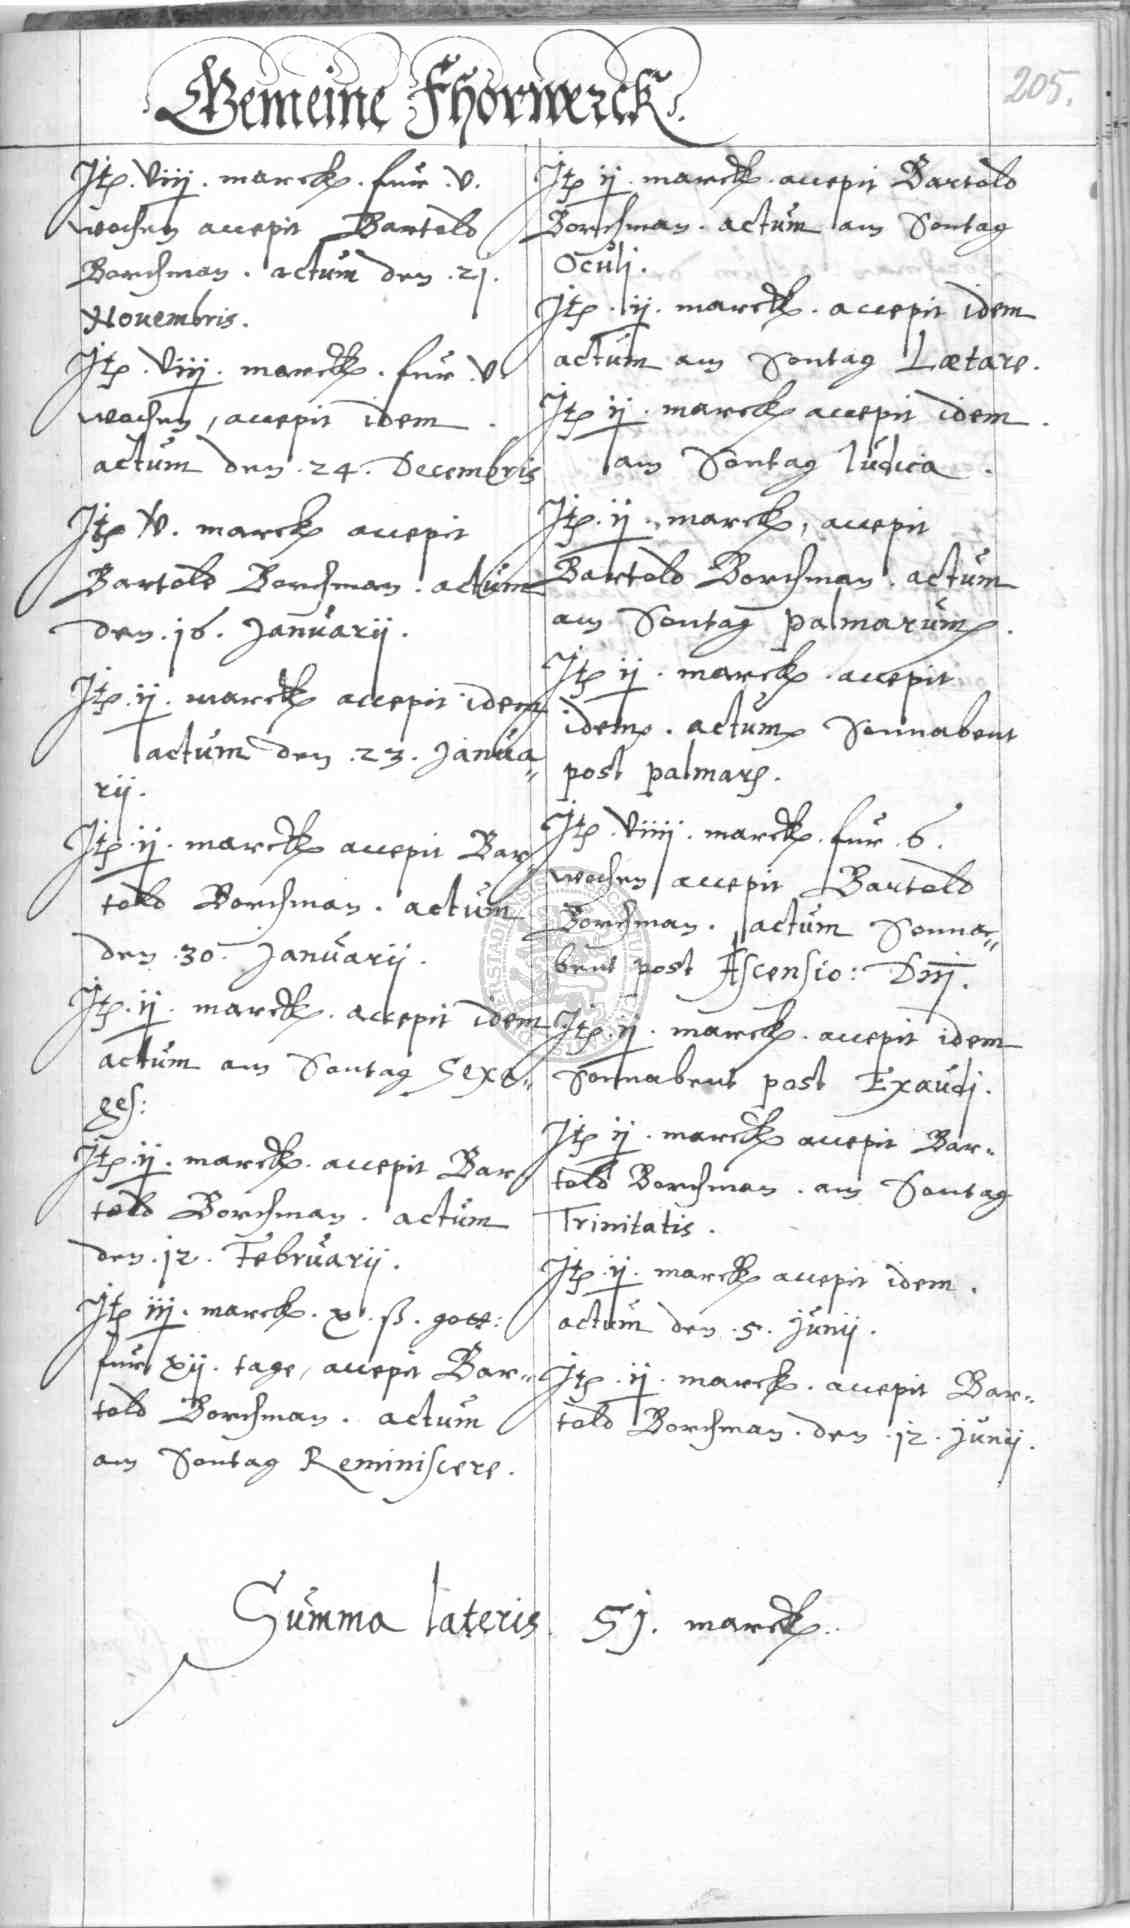 Gemeine Fhorwerck.
205.
Itẽ. viij. marck. fur. v.
wochen accepit Bartold
Borchman. actum den .2j.
Nouembris.
Itẽ. viij. marck. fur. v.
wochen, accepit idem.
actum den .24. Decembris
Itẽ v. marck accepit
Bartold Borchman. actum
den .j6. Januarij.
Itẽ. ij. marck accepit idem
actum den .23. Janua„
rij.
Itẽ. ij. marck accepit Bar„
told Borchman. actum
den .30. Januarij.
Itẽ. ij. marck. accepit idem
actum am Sontag Sexa„
ges:
Itẽ. ij. marck. accepit Bar„
told Borchman. actum
den .j2. Februarij.
Itẽ iij. marck. x. ß. gott:
fur xij. tage, accepit Bar„
told Borchman. actum
am Sontag Reminiscere.
Itẽ ij. marck. accepit Bartold
Borchman. actum am Sontag
Oculj.
Itẽ. ij. marck. accepit idem
actum am Sontag Lætare.
Itẽ ij. marck accepit idem.
am Sontag Iudica.
Itẽ. ij. marck, accepit
Bartold Borchman. actum
am Sontag palmarum.
Itẽ ij. marck. accepit
idem. actum Sonnabent
post palmarũ.
Itẽ. viiij. marck. fur .6.
wochen accepit Bartold
Borchman. actum Sonna„
bent post Ascensio: Dnj.
Itẽ. ij. marck. accepit idem
Sonnabent post Exaudj.
Itẽ ij. marck accepit Bar„
told Borchman. am Sontag
Trinitatis.
Itẽ. ij. marck accepit idem.
actum den .5. Junij.
Itẽ. ij. marck. accepit Bar„
told Borchman. den .j2. Junij.
Summa lateris 5j. marck.